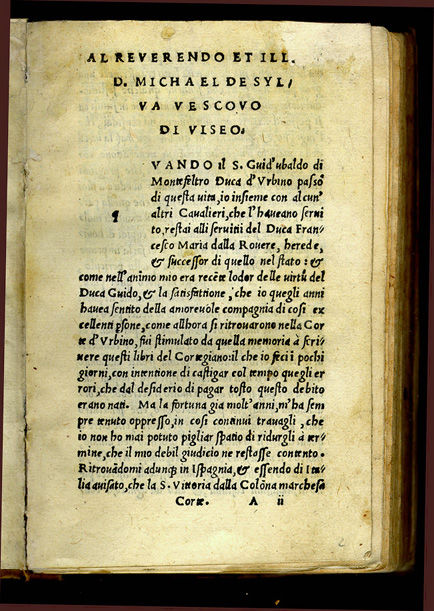 AL REVERENDO ET ILL.
D. MICHAEL DE SYL/
VA VESCOVO
DI VISEO.
q VANDO il S. Guid'ubaldo di
Montefeltro Duca d'Vrbino passò
di questa uita, io insieme con alcun'
altri Caualieri, che l'haueano serui
to, restai alli seruitii del Duca Fran-
cesco Maria dalla Rouere, herede,
& successor di quello nel stato: &
come nell'animo mio era recẽte lodor delle uirtù del
Duca Guido, & la satisfattione, che io quegli anni
hauea sentito della amoreuole compagnia di così ex
cellenti ꝑsone, come allhora si ritrouarono nella Cor
te d'Vrbino, fui stimulato da quella memoria à scri-
uere questi libri del Cortegiano: il che io feci ĩ pochi
giorni, con intentione di castigar col tempo quegli er
rori, che dal desiderio di pagar tosto questo debito
erano nati. Ma la fortuna gia molt'anni, m'ha sem
pre tenuto oppresso, in così continui trauagli, che
io non ho mai potuto pigliar spatio di ridurgli à ter-
mine, che il mio debil giudicio ne restasse contento.
Ritrouãdomi adunq; in Ispagnia, & essendo di Ita
lia auisato, che la S. Vittoria dalla Colõna marchesa
Corte. A ii
2